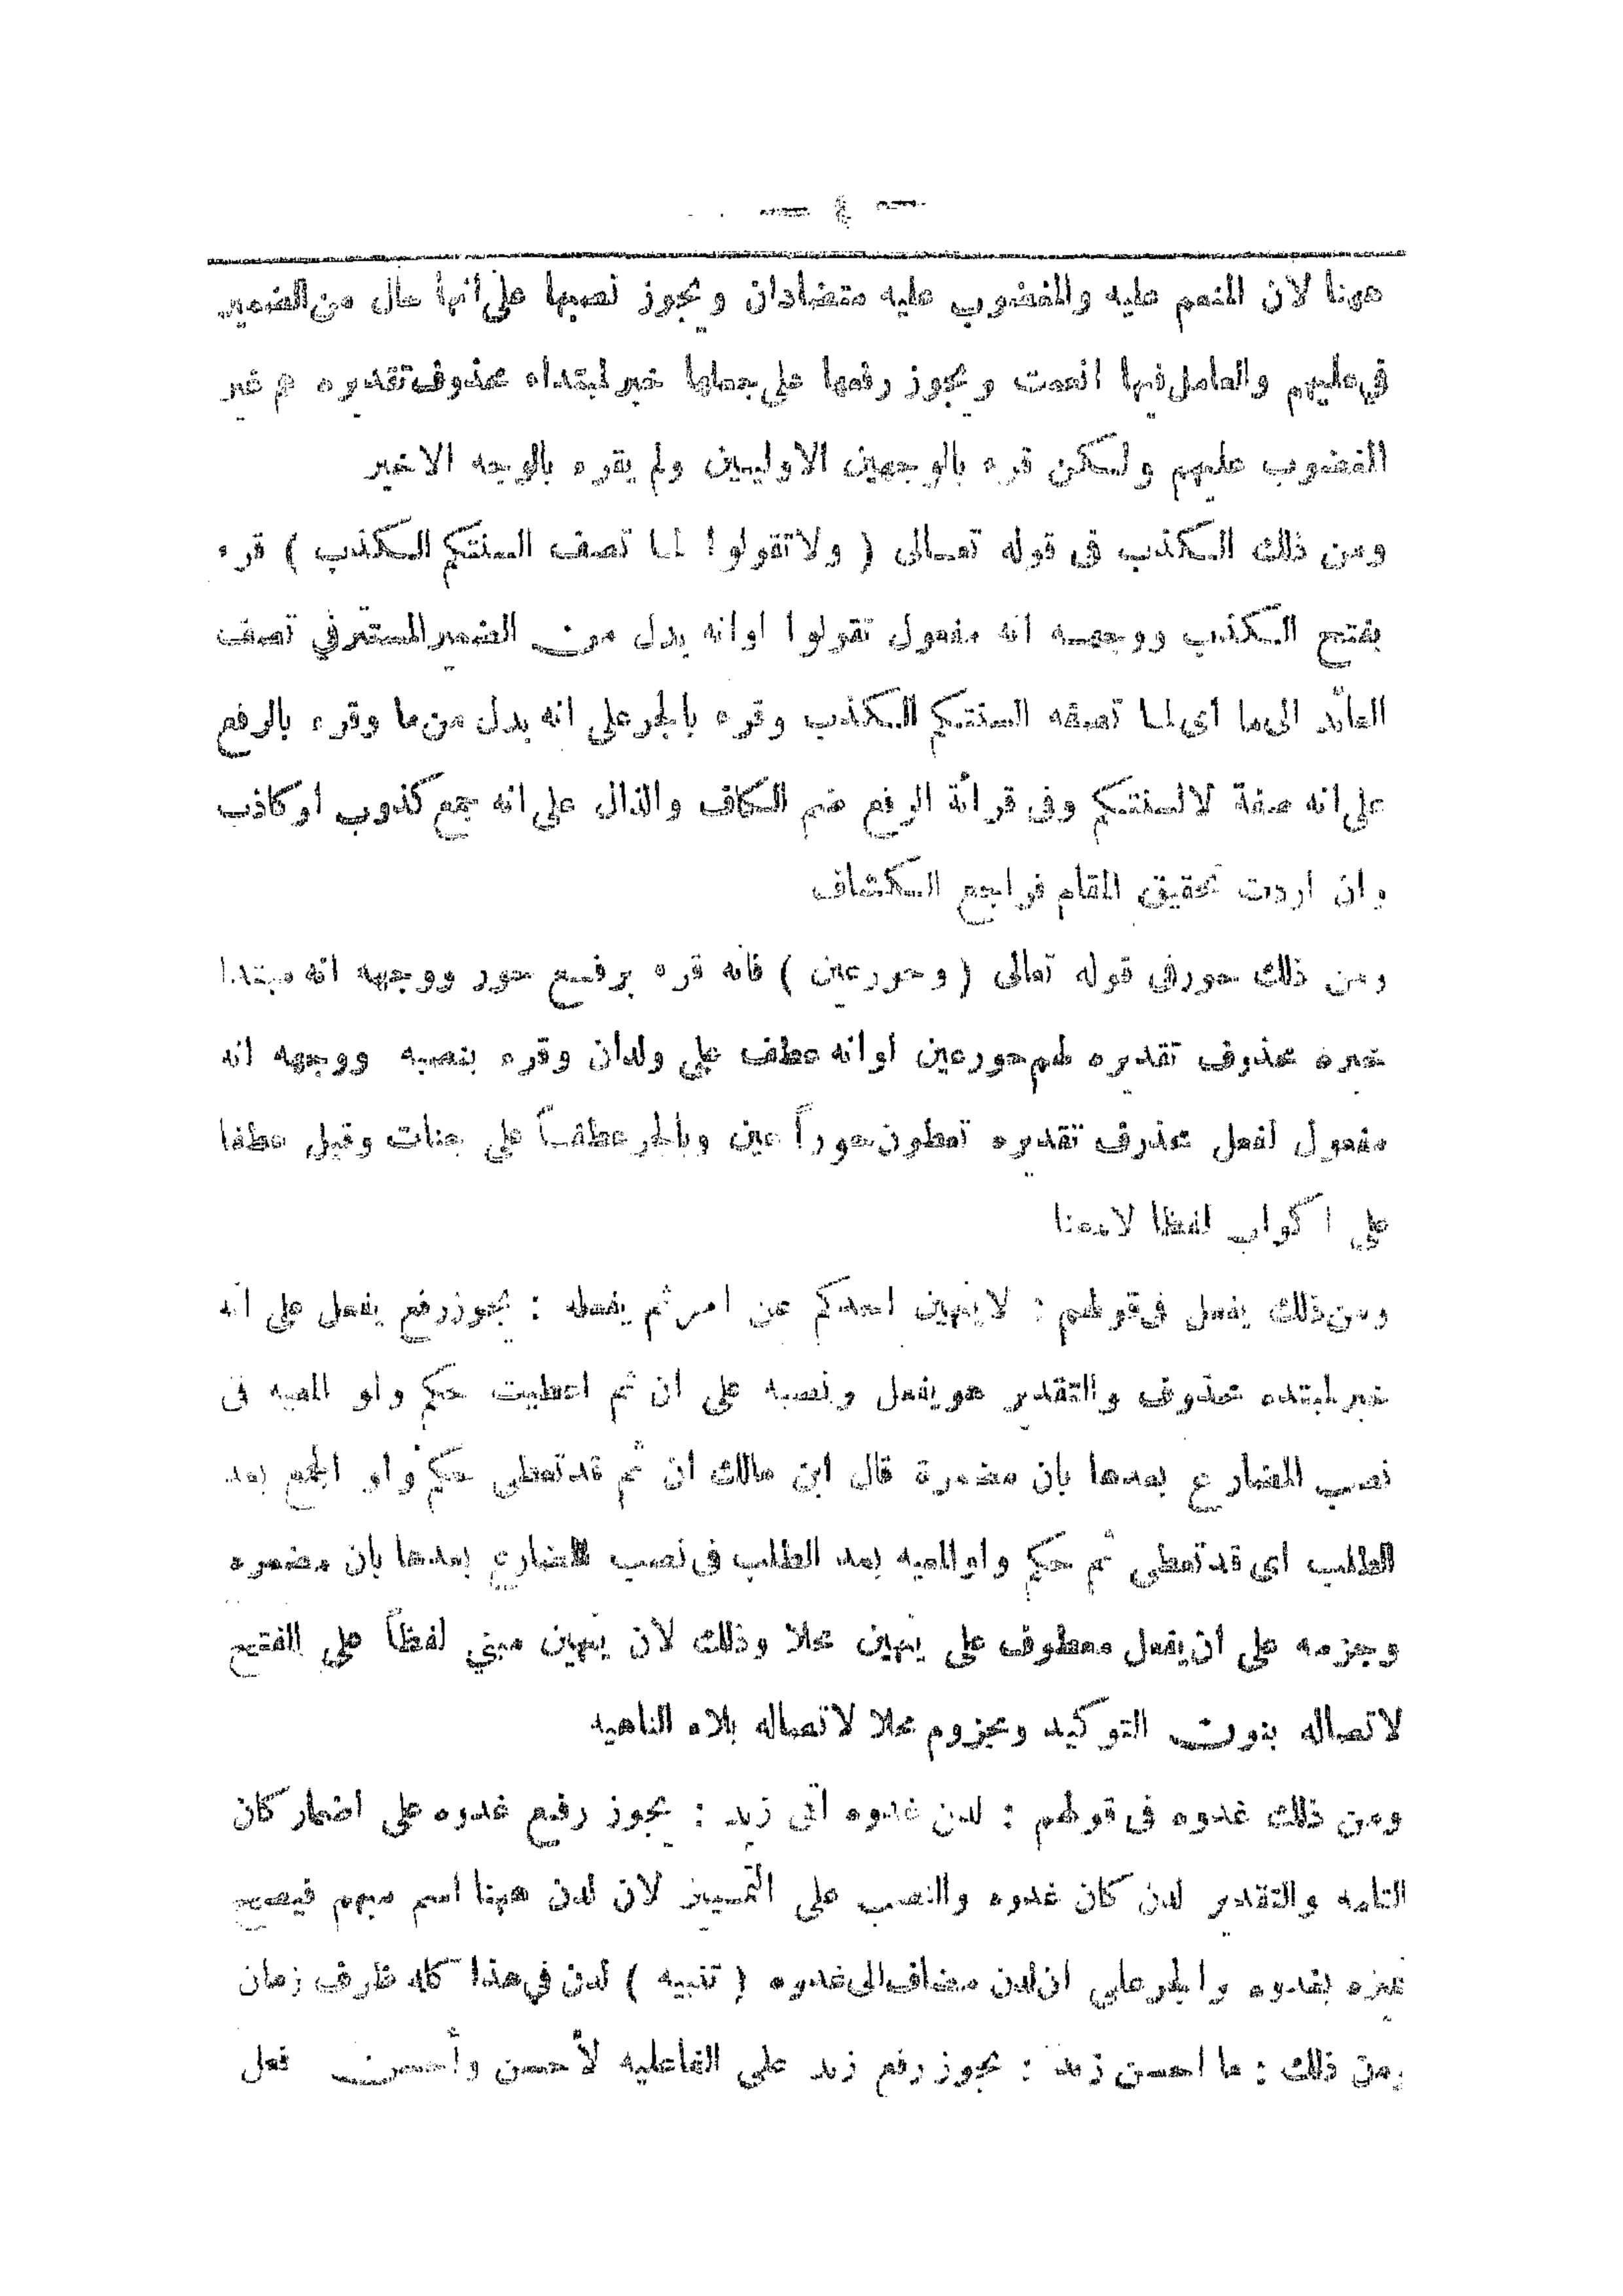 — ٤ —
ههنا لان المنعم عليه والمغضوب عليه متضادان ويجوز نصبها على انها حال من الضمير
في عليهم والعامل فيها انعمت ويجوز رفعها على جعلها خبر لمبتداه محذوف تقديره هم غير
المغضوب عليهم ولكن قره بالوجهين الاوليين ولم يقره بالوجه الاخير
ومن ذلك الكذب في قوله تعالى ( ولا تقولوا لما تصف السنتكم الكذب ) قرء
بفتح الكذب ووجهه انه مفعول تقولوا اوانه بدل من الضمير المستتر في تصف
العائد الى ما اى لما تصفه السنتكم الكذب وقره بالجر على انه بدل من ما وقرء بالرفع
على انه صفة لالسنتكم وفى قرائة الرفع ضم الكاف والذال على انه جمع كذوب او كاذب
وان اردت تحقيق المقام فراجع الكشاف
ومن ذلك حور في قوله تعالى ( وحور عين ) فانه قره برفع حور ووجهه انه مبتدا
خبره محذوف تقديره لهم حور عين او انه عطف على ولدان وقرء بنصبه ووجهه انه
مفعول لفعل محذوف تقديره تعطون حوراً عين وبالجر عطفاً على جنات وقيل عطفا
على اكواب لفظا لامعنا
ومن ذلك يفعل فى قولهم : لا ينهين احدكم عن امر ثم يفعله : يجوز رفع يفعل على انه
خبر لمبتده محذوف والتقدير هو يفعل ونصبه على ان ثم اعطيت حكم واو المعيه فى
نصب المضارع بعدها بان مضمرة قال ابن مالك ان ثم قد تعطى حكم واو الجمع بعد
الطلب اى قد تعطى ثم حكم واو المعيه بعد الطلب فى نصب المضارع بعدها بان مضمره
وجزمه على ان يفعل معطوف على ينهين محلا وذلك لان ينهين مبني لفظاً على الفتح
لاتصاله بنون التوكيد ومجزوم محلا لاتصاله بلاه الناهيه
ومن ذلك غدوه فى قولهم : لدن غدوه اتى زيد : يجوز رفع غدوه على اضمار كان
التامه والتقدير لدن كان غدوه والنصب على التمييز لان لدن ههنا اسم مبهم فيصح
تميزه بغدوه والجر على ان لدن مضاف الى غدوه ( تنبيه ) لدن في هذا كله ظرف زمان
ومن ذلك : ما احسن زيد : يجوز رفع زيد على الفاعليه لأحسن وأحسن فعل